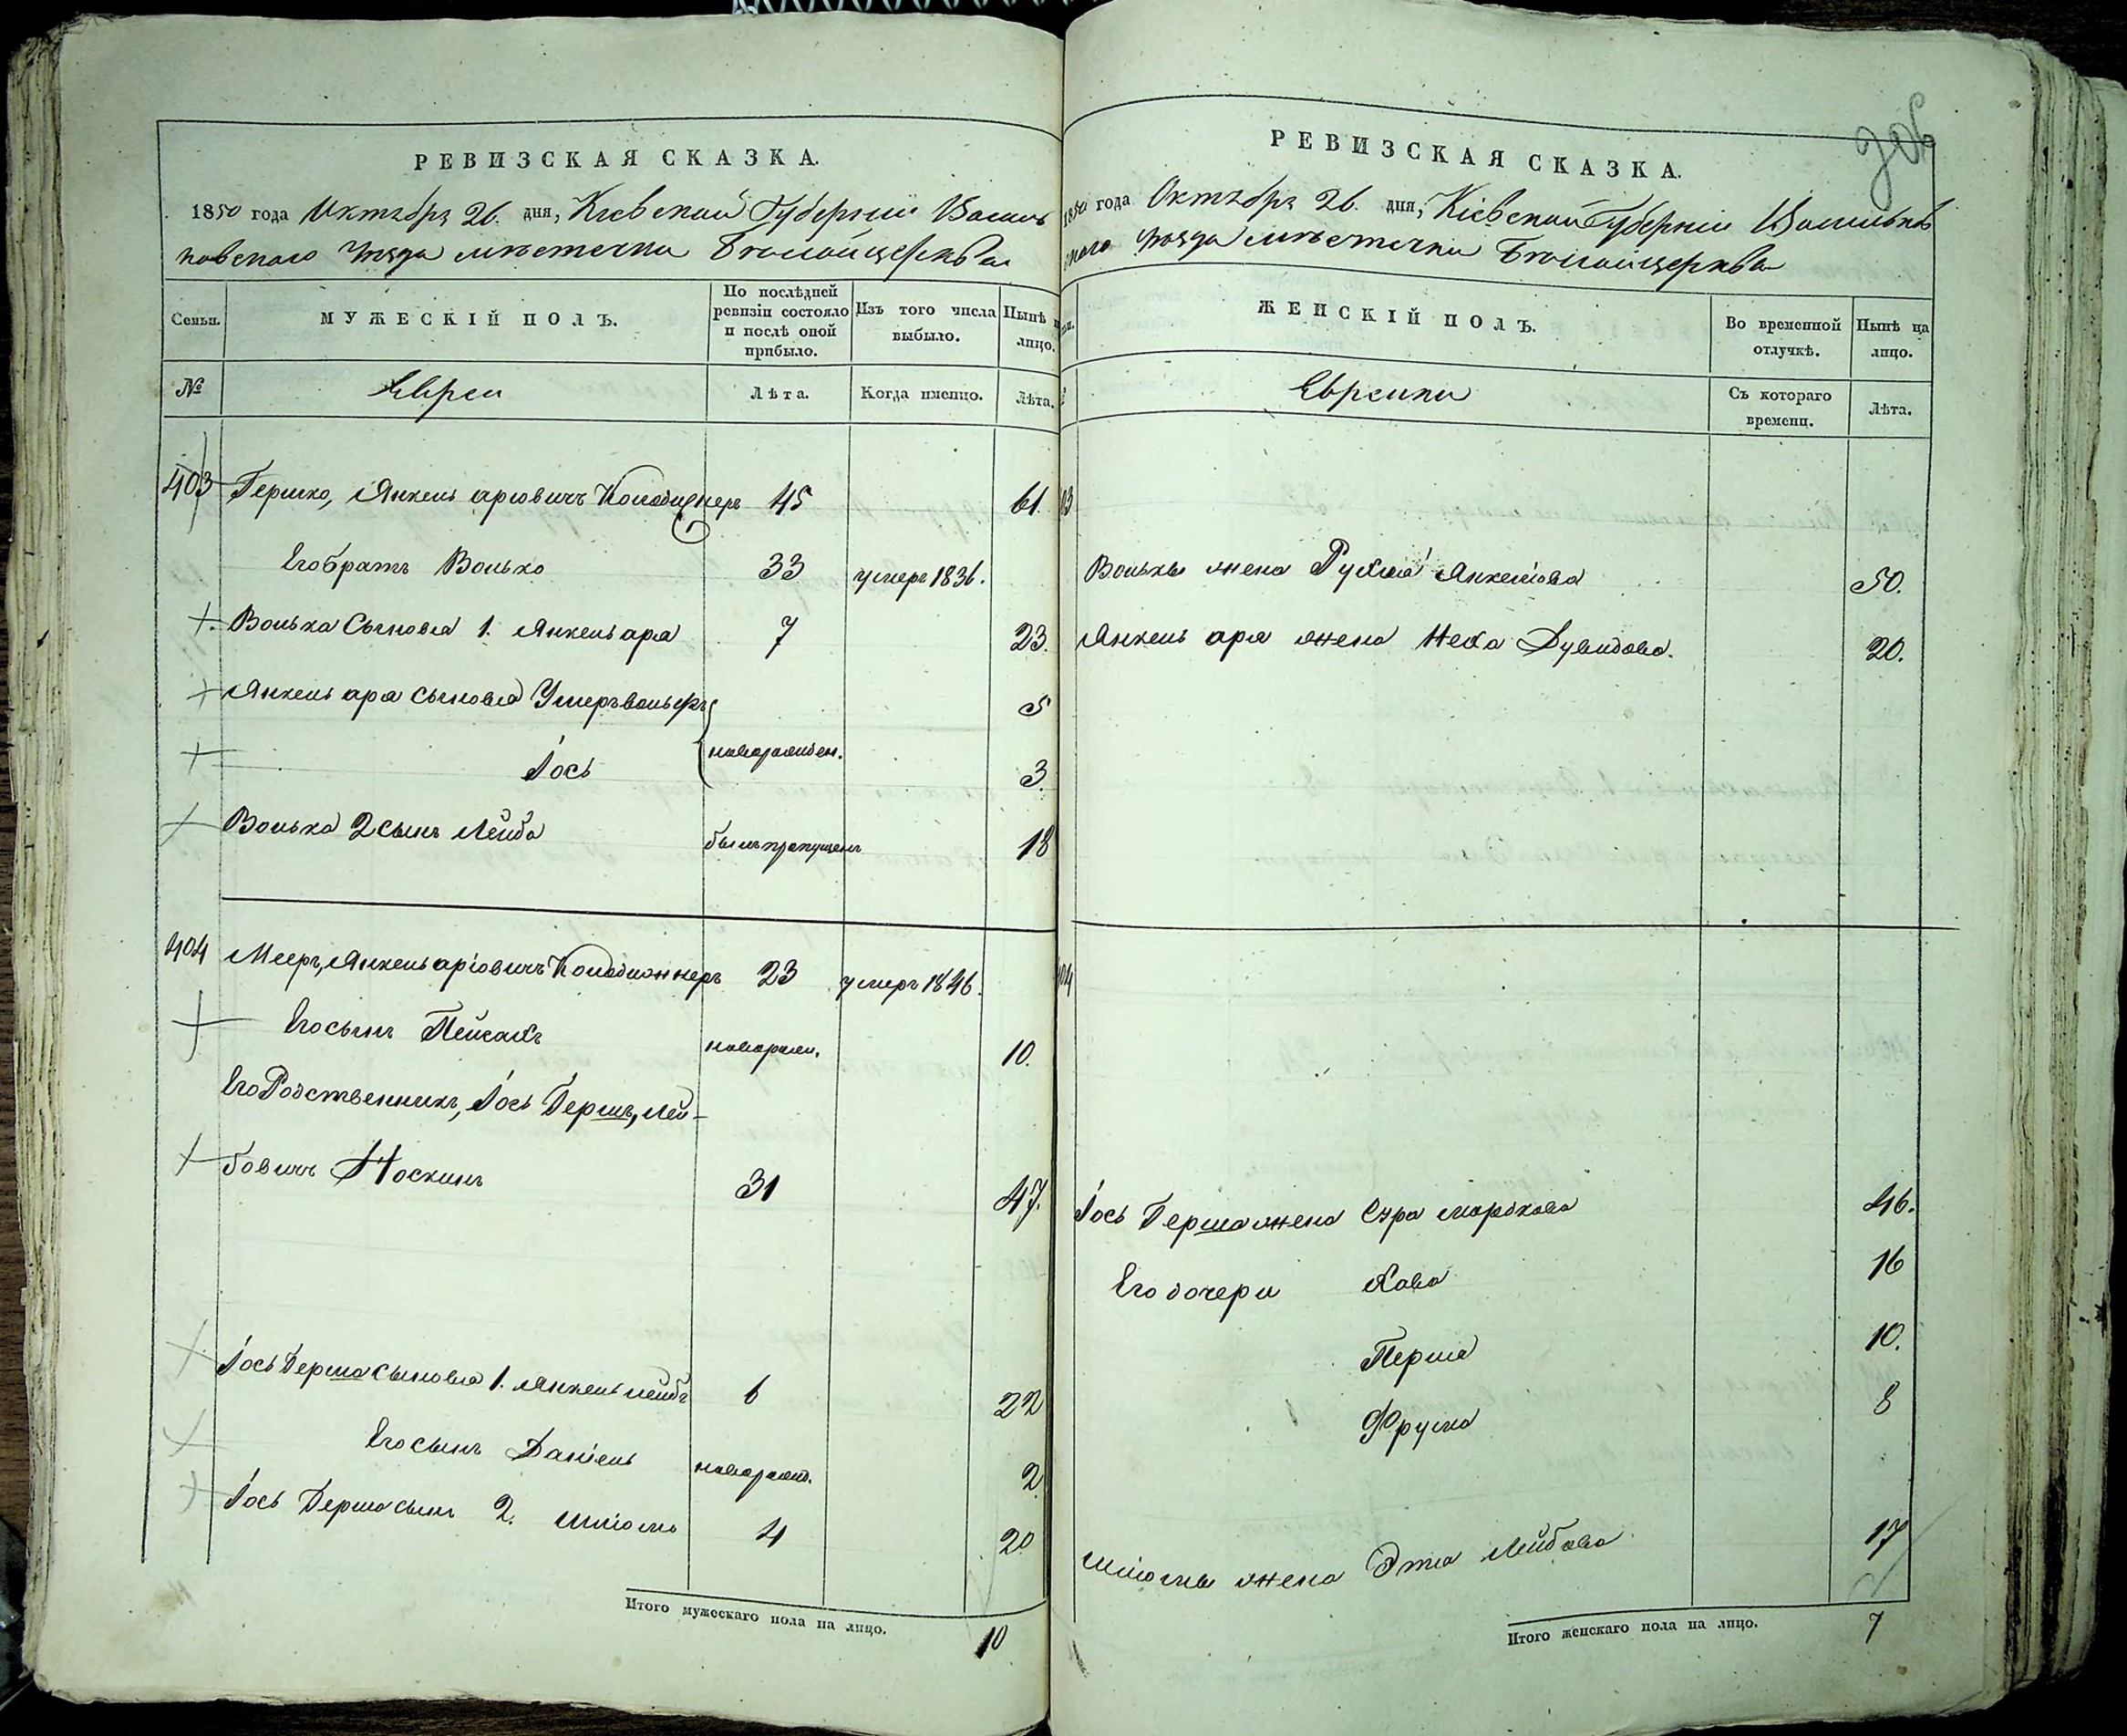 РЕВИЗСКАЯ СКАЗКА.
1850 года Октября 26. дня, Кіевской Губерніи Василь
ковского уезда местечка Белойцеркви
Семьи.
МУЖЕСКІЙ ПОЛЪ.
По послѣдней ревизіи состояло и послѣ оной прибыло.
Изъ того числа выбыло.
Нынѣ на лицо.
№
Евреи
Лѣта.
Когда именно.
Лѣта.
403 Гершко, Янкель аріовичъ 45 61.
Его братъ Волько 33 умеръ 1836.
Волька Сыновья 1. Янкель аря 7 23.
Янкель аря сыновья 5
Іось новорожден. 3.
Волька 2 сынъ Лейба былъ пропущенъ 18
404 Мееръ, Янкель аріовичъ 23 умеръ 1846.
Его сынъ Пейсахъ новорож. 10.
Его Родственникъ, Іось Гершъ, Лей-
бовичъ Носкинъ 31 47.
Іось Герша сыновья 1. Янкель лейбъ 6 22
Его сынъ Даніель новорожд. 2.
Іось Герша сынъ 2. Шліома 4 20
Итого мужескаго пола на лицо. 10
РЕВИЗСКАЯ СКАЗКА.
1850 года Октября 26. дня, Кіевской Губерніи Васильков
ского уезда местечка Белойцеркви
ЖЕНСКІЙ ПОЛЪ.
Во временной отлучкѣ.
Нынѣ на лицо.
Еврейки
Съ котораго времени.
Лѣта.
403
Вольки жена Рухля Янкелева 50.
Янкель аря жена Неха Дувидова. 20.
404
Іось Герша жена Сура мордкова 46.
Его дочери Хава 16
Перля 10.
Фрума 8
Шліомы жена Этя Лейбова 17
Итого женскаго пола на лицо. 7